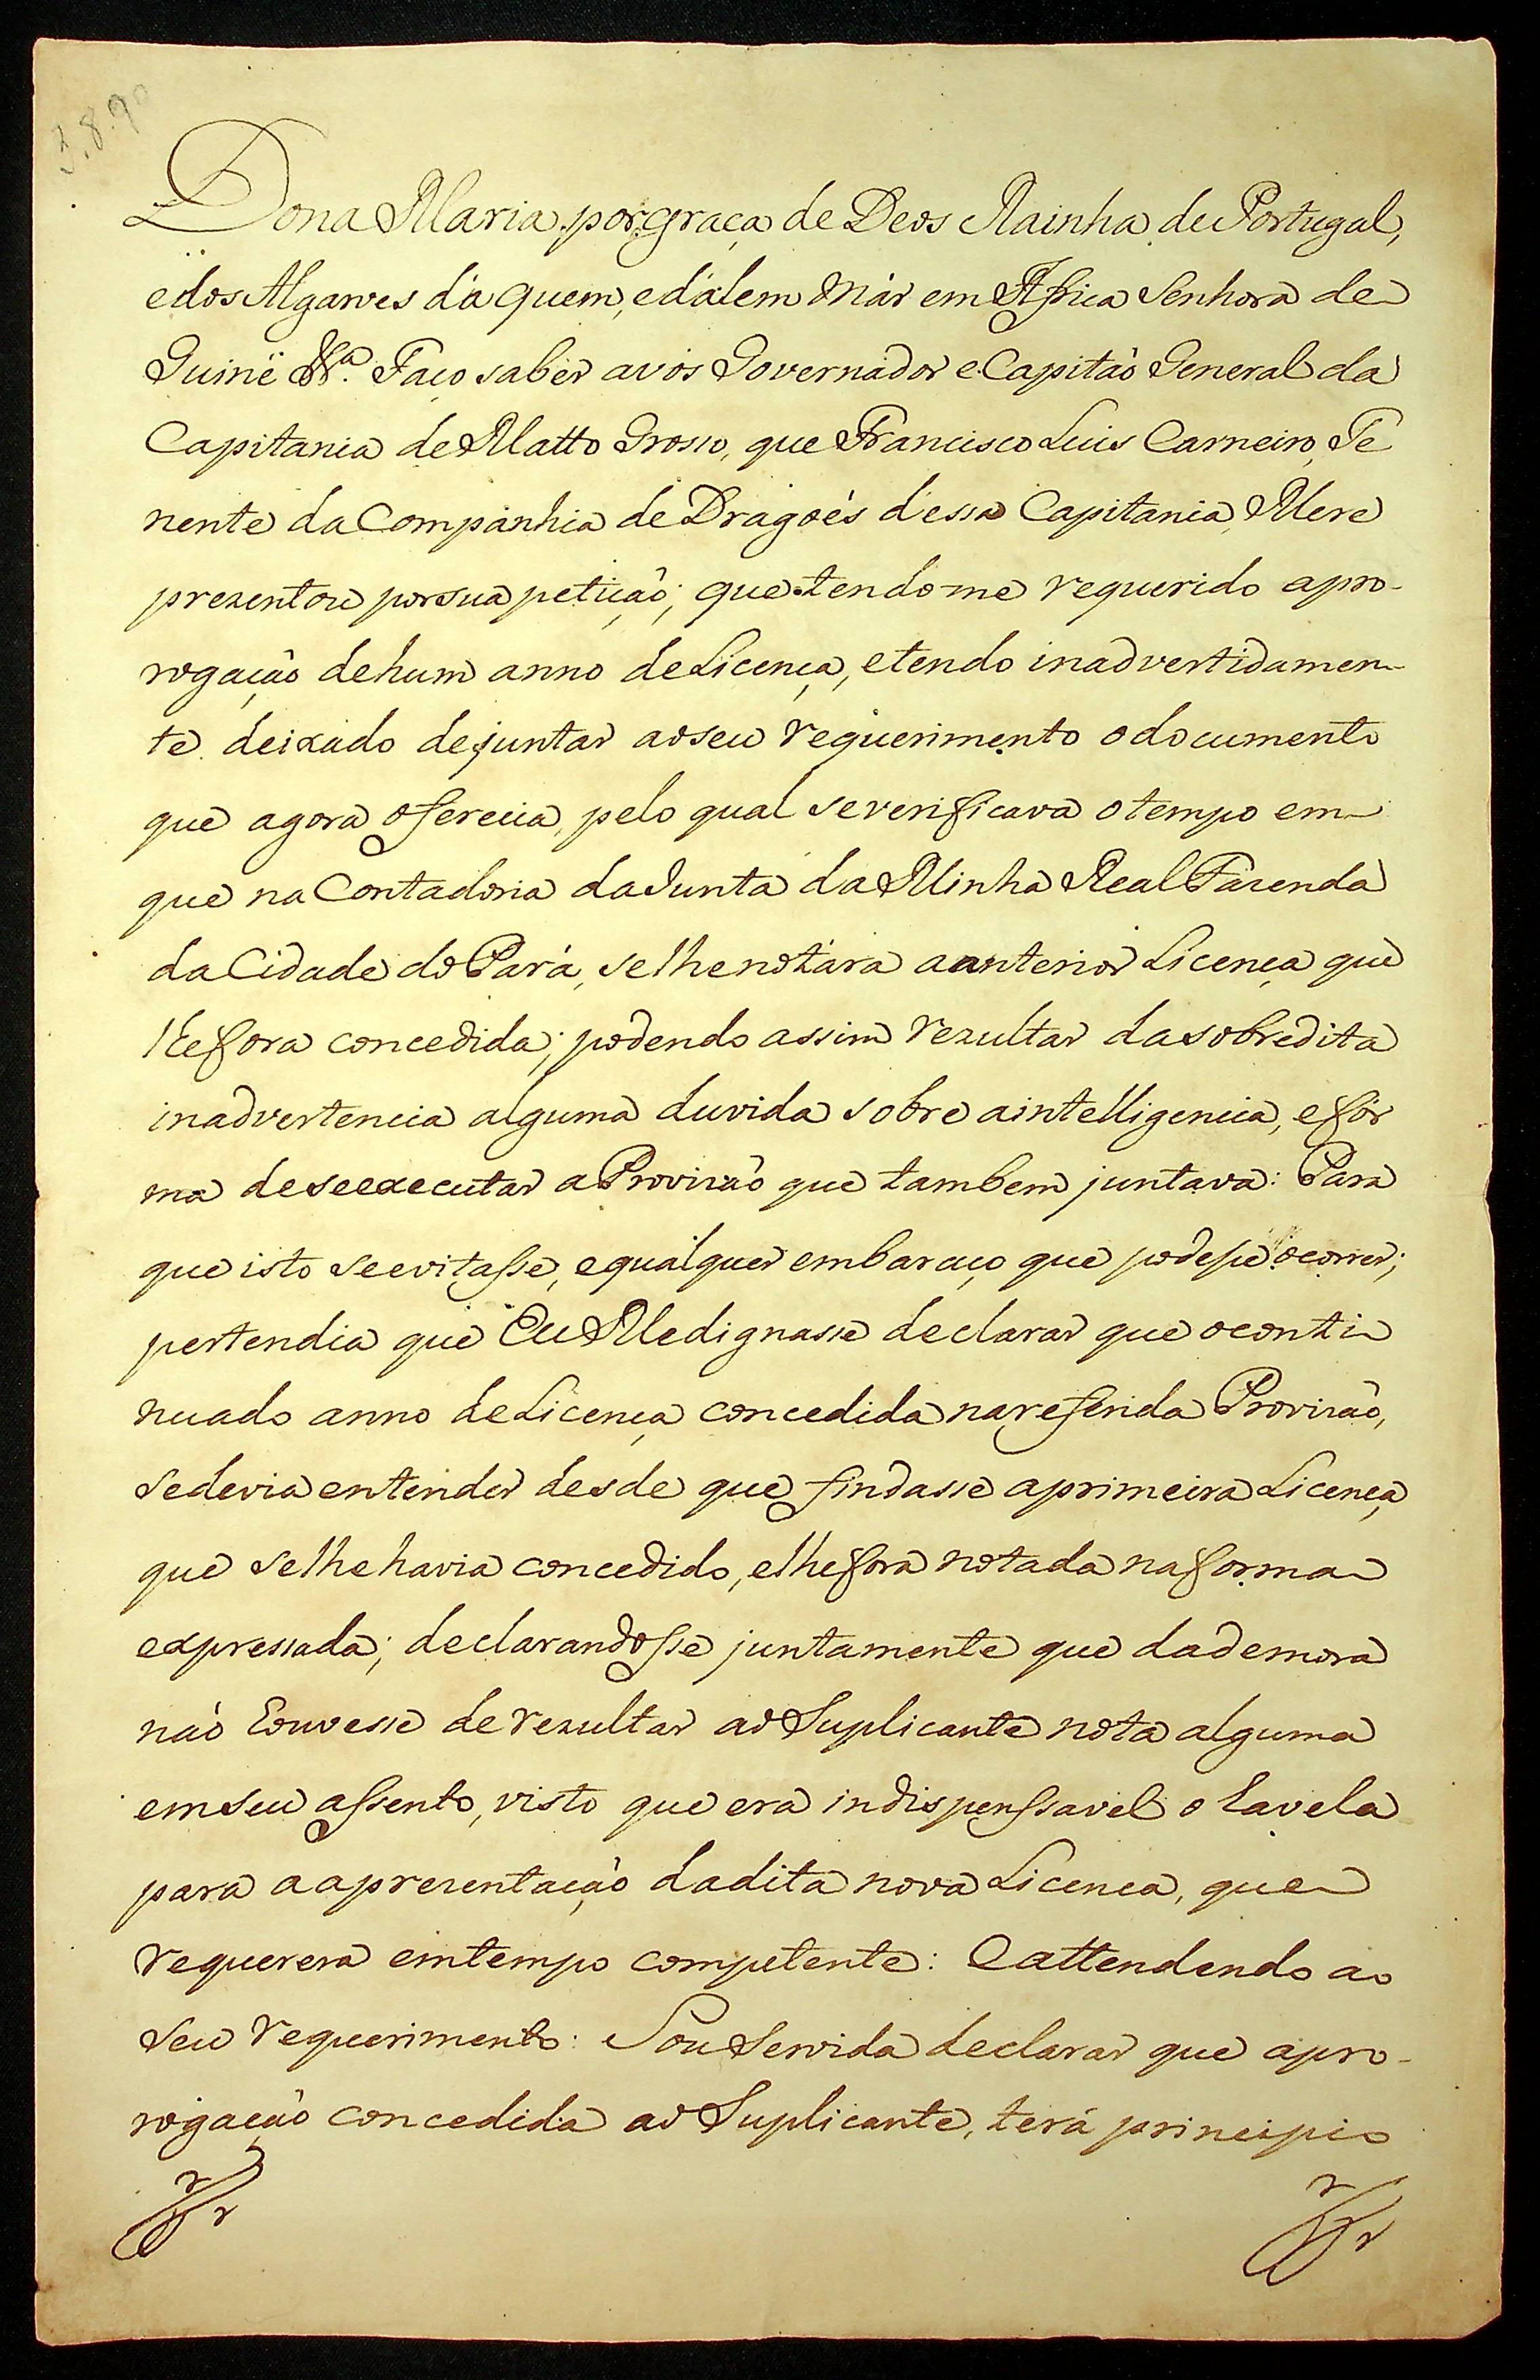 3.8.90
Dona Maria por graça de Deos Rainha de Portugal,
e dos Algarves dáquem, e dálem Már em Affrica Senhora de
Guiné &ª. Faço saber avós Governador e Capitaõ General da
Capitania de Matto Grosso, que Francisco Luis Carneiro, Te
nente da Companhia de Dragoẽs déssa Capitania, Me re
prezentou por sua petiçaõ; que tendo-me requerido a pro-
rogaçaõ de hum anno de Licença, e tendo inadvertidamen-
te deixado de juntar ao seu requerimento o documento
que agora oferecia, pelo qual se verificava o tempo em
que na Contadoria da Junta da Minha Real Fazenda
da Cidade do Pará, se lhe notára a anterior Licença que
lhe fora concedida; podendo assim rezultar da sobredita
inadvertencia alguma duvida sobre a intelligencia, e fór
ma de se executar a Provizaõ que tambem juntava: Para
que isto se evitasse, e qualquer embaraço que podesse ocorrer;
pertendia que Eu Me dignasse declarar que o conti
nuado anno de Licença concedida na referida Provizaõ,
se devia entender desde que findasse a primeira Licença
que se lhe havia concedido, e lhe fora notada na forma
expressada; declarandosse juntamente que da demora
naõ houvesse de rezultar ao Suplicante nota alguma
em seu assento, visto que era indispenssavel o havela
para a aprezentaçaõ da dita nova Licença, que
requerera em tempo competente: E attendendo ao
seu requerimento: Sou Servida declarar que a pro-
rogaçaõ concedida ao Suplicante, terá principio